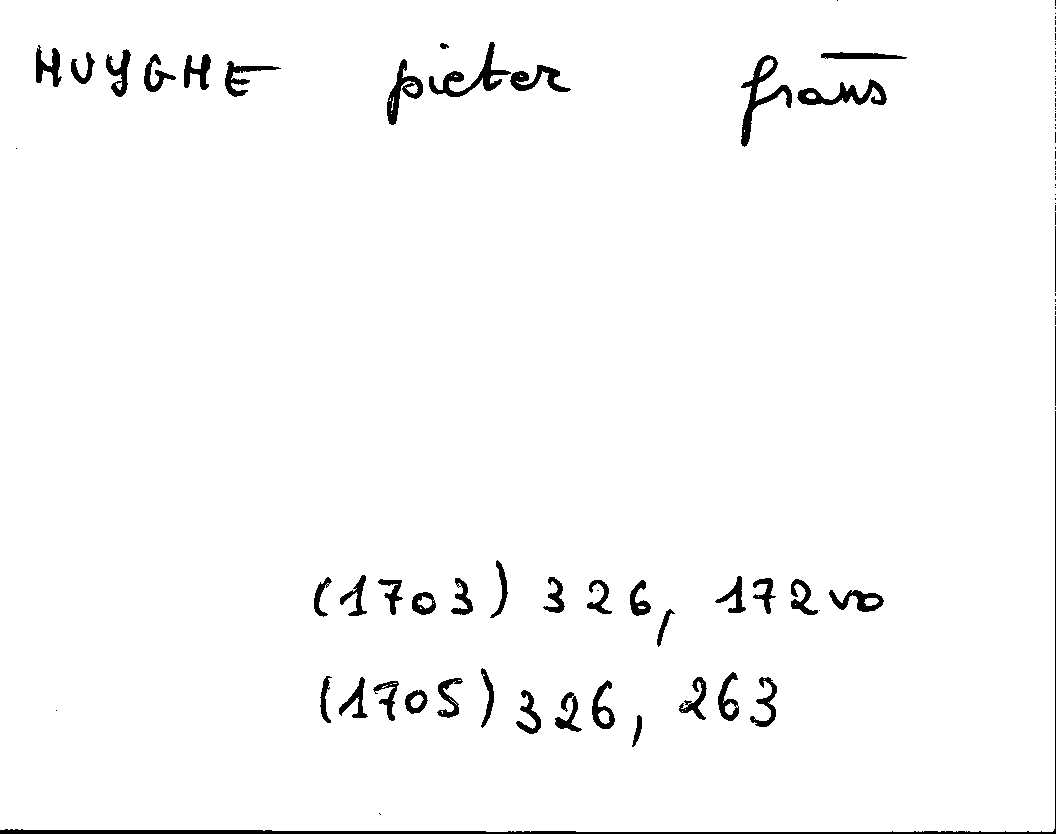 HUYGHE pieter frans
(1703) 326, 172vo
(1705) 326, 263